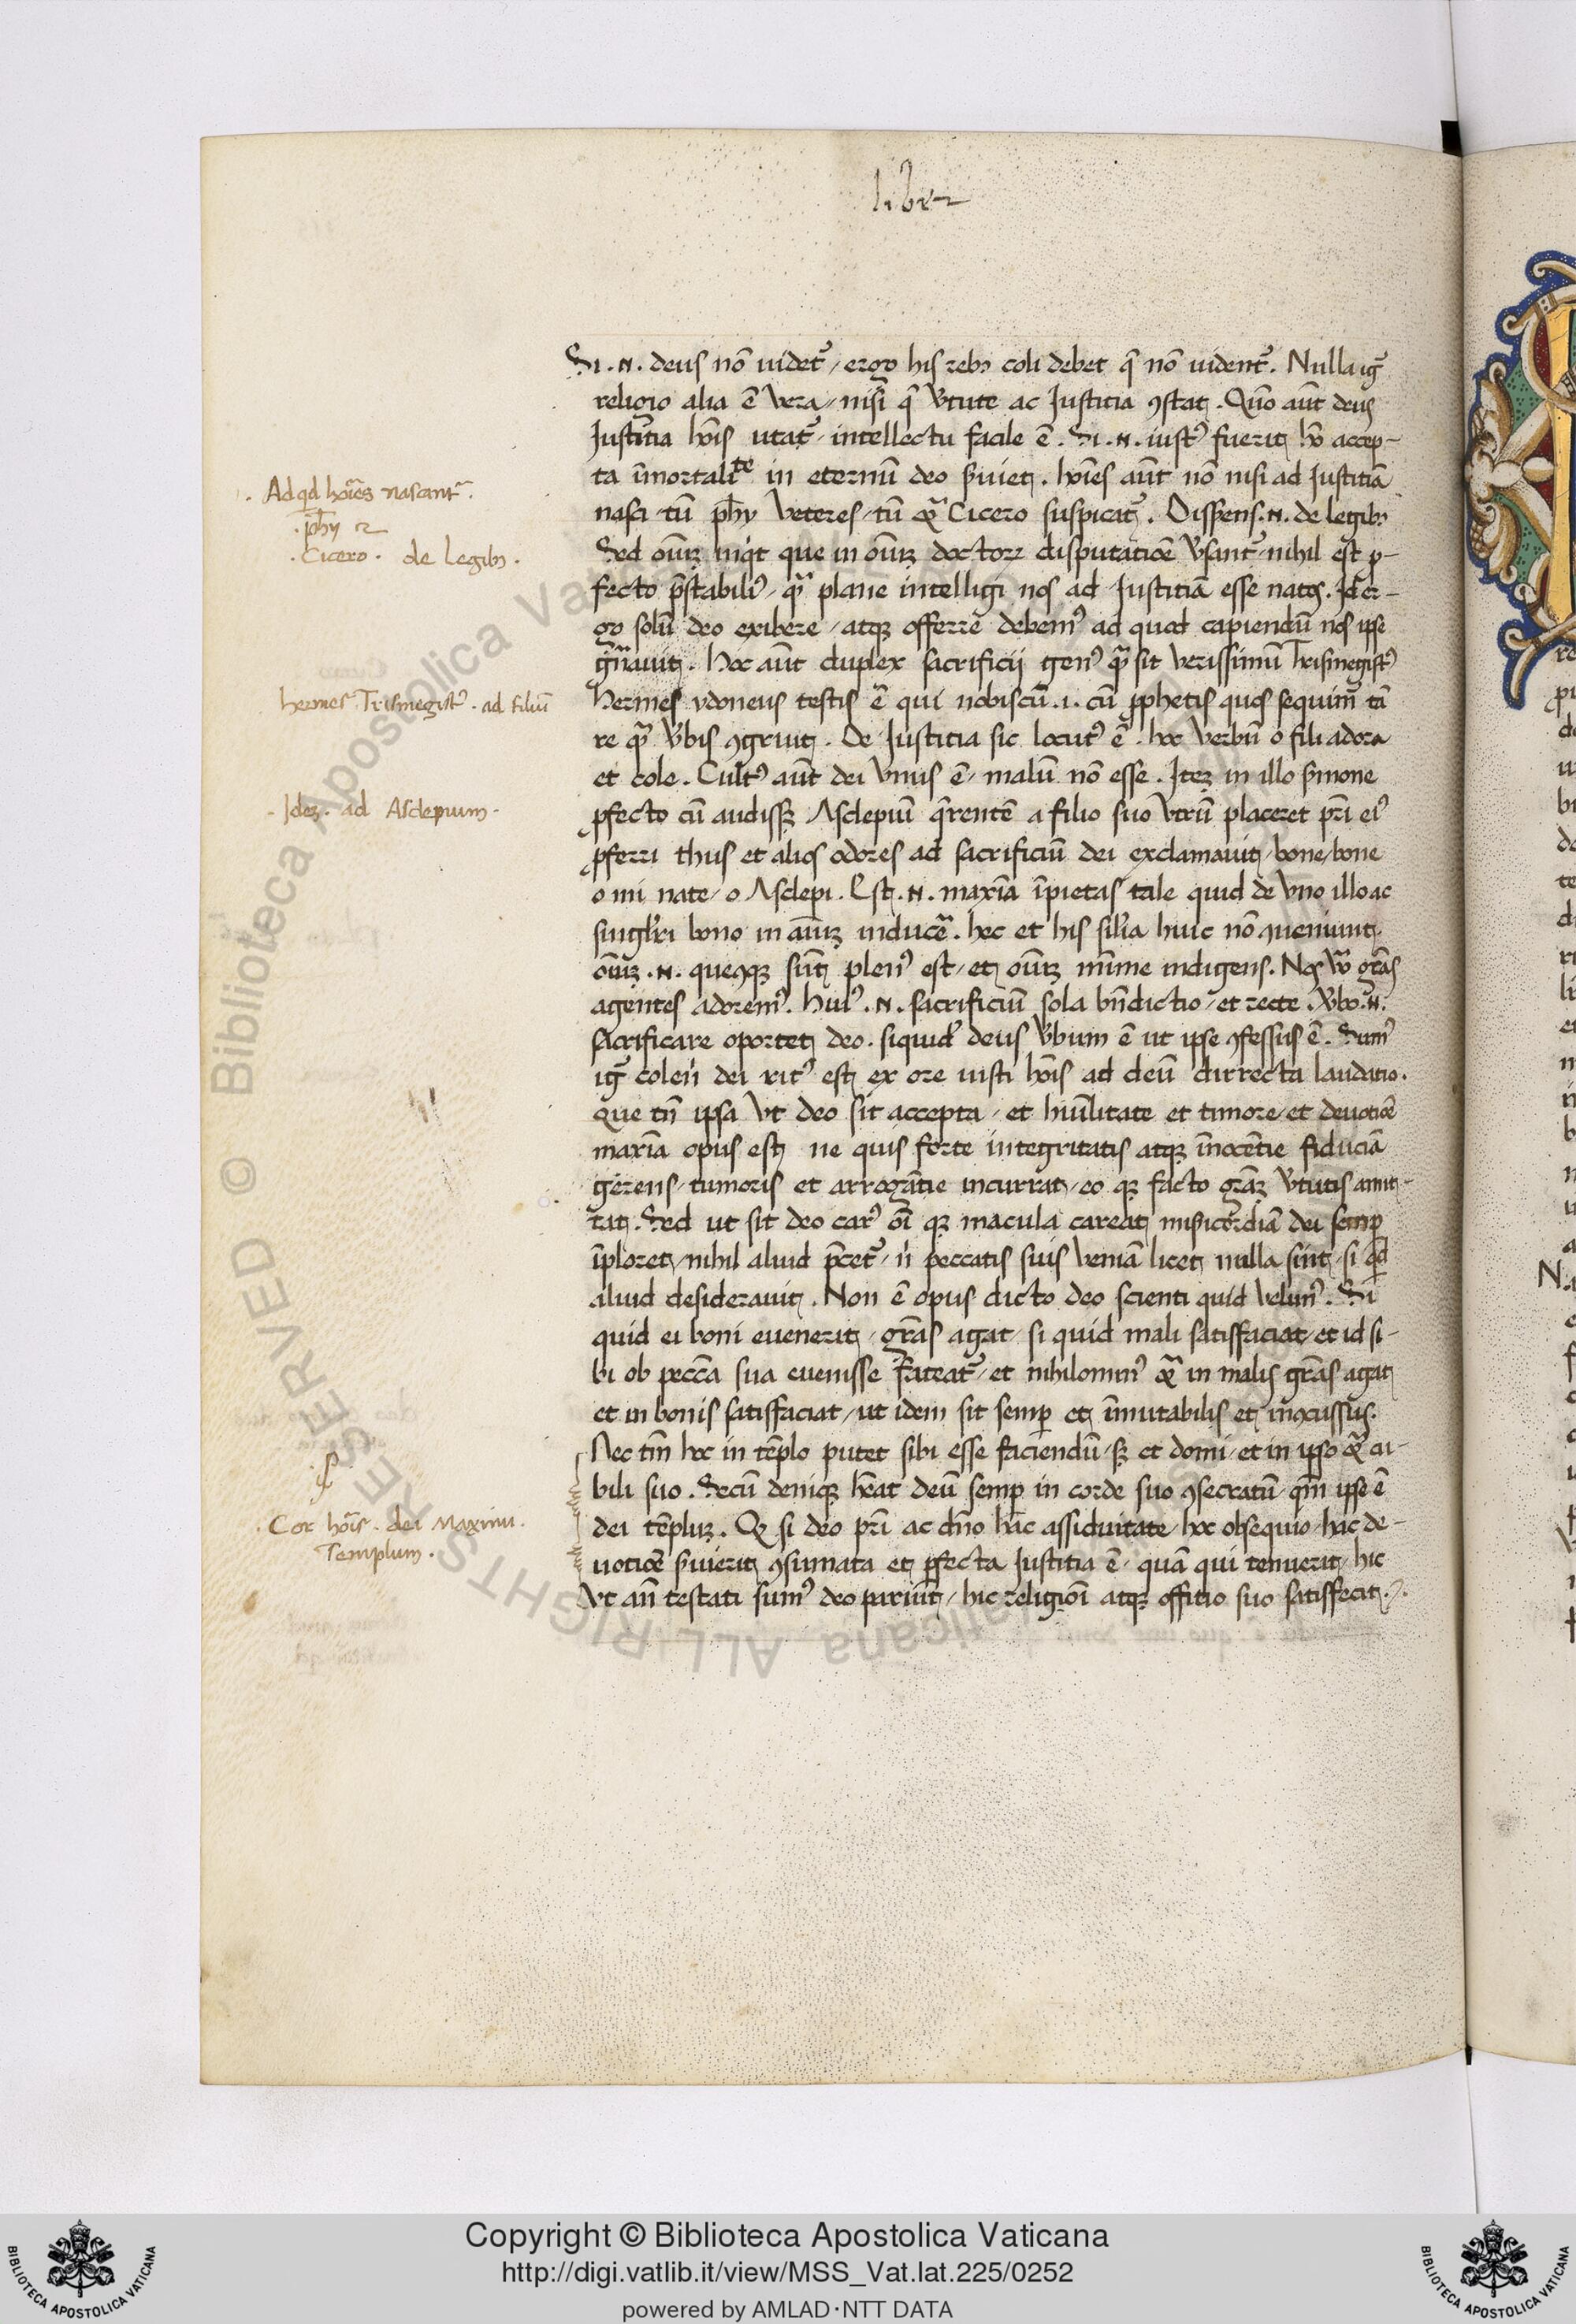 liber
Si .N. deus nō uidet᷑ / ergo his rebꝫ coli debet q̄ nō uident᷑. Nulla ig̃
religio alia ē vera / nisi q̄ v̄tute ac Iustitia ꝯstat. Quō aūt deus
Iustitia hōis utat᷑ / intellectu facile ē. Si .N. iust᷒ fuerit hō accep-
ta īmortalitate in eternū deo ẜuiet. hoīes aūt nō nisi ad Iustitiā
nasci / tū ph̄y veteres / tū Cicero suspicat᷑. Disserens .N. de legibꝫ
Sed oīuꝫ inq̇t que in oīuꝫ doctoꝝ disputatiōe v̄sant᷑ / nihil est p-
fecto p̄stabili᷒ / qꝫ plane intelligi nos ad Iustitiā esse natos. Id er-
go solū deo exibere / atqꝫ offerre debem᷒ ad quod capiendū nos ipse
gn̄auit. Hoc aūt duplex sacrificij gen᷒ qꝫ sit verissimū Trismegist᷒
Hermes ydoneus testis ē qui nobiscū .i. cū ꝓphetis quos sequim᷑ tā
re qꝫ v̄bis ꝯgruit. De Iustitia sic locut᷒ ē. hoc verbū o fili adora
et cole. Cult᷒ aūt dei vnus ē / malū nō esse. Iteꝫ in illo ẜmone
ꝑfecto cū audissꝫ Asclepiū q̄rentē a filio suo vtrū placeret pr̄i ei᷒
ꝓferri thus et alios odores ad sacrificiū dei exclamauit / bone / bone
o mi nate / o Asclepi. Est .N. maxīa īpietas tale quid de vno illo ac
singl'ri bono in aīuꝫ inducē. hec et his sil'ia huic nō ꝯueniunt.
oīuꝫ .N. quecūqꝫ sūt plen᷒ est / et oīuꝫ mīme indigens. Nos v̄o gr̄as
agentes adorem᷒. Hui᷒ .N. sacrificiū sola bn̄dictio / et recte. v̄bo .N.
sacrificare oportet deo. siquid' deus v̄bum ē ut ipse ꝯfessus ē. Sum᷒
ig̃ colen̄ dei rit᷒ est ex ore iusti hōis ad deū dirrecta laudatio.
que tn̄ ipsa vt deo sit accepta / et hūilitate et timore / et deuotiōe
maxīa opus est ne quis forte integritatis atqꝫ īnocētie fiduciā
gerens / tumoris et arrogātie incurrat / eo qꝫ facto grāꝫ v̄tutis amit-
tat. Sed ut sit deo car᷒ oī qꝫ macula careat misicordiā dei semꝑ
īploret / nihil aliud p̄cet᷑ / n̄ peccatis suis veniā licet nulla sint / si qd
aliud desiderauit. Non ē opus dicto deo scienti quid velim᷒. Si
quid ei boni euenerit / gr̄as agat / si quid mali satisfaciat / et id si-
bi ob pecc̄a sua euenisse fateat᷑ / et nihilomin᷒ in malis gr̄as agat
et in bonis satisfaciat / ut idem sit semꝑ et īmutabilis et īꝯcussus.
Nec tm̄ hoc in tēplo putet sibi esse faciendū / sꝫ et domi / et in ipso cu-
bili suo. Secū deniqꝫ hēat deū semꝑ in corde suo ꝯsecratū qm̄ ipse ē
dei tēpluꝫ. Qꝫ si deo pr̄i ac dn̄o hac assiduitate / hoc obsequio / hac de-
uotiōe ẜuierit ꝯsumata et ꝑfecta Iustitia ē / quā qui tenuerit / hic
vt an̄ testati sum᷒ deo paruit / hic religiōi atqꝫ offitio suo satisfecit.
. Ad qd hoīes nascant᷑.
. ph̄y ⁊
. Cicero . de Legibꝫ .
hermes Trismegist᷒ . ad filiū
. Ideꝫ . ad Asclepium .
. Cor hōis . dei Maximi .
Templum .
© Biblioteca Apostolica Vaticana
ALL RIGHTS RESERVED
Copyright © Biblioteca Apostolica Vaticana
http://digi.vatlib.it/view/MSS_Vat.lat.225/0252
powered by AMLAD·NTT DATA
BIBLIOTECA APOSTOLICA VATICANA
BIBLIOTECA APOSTOLICA VATICANA